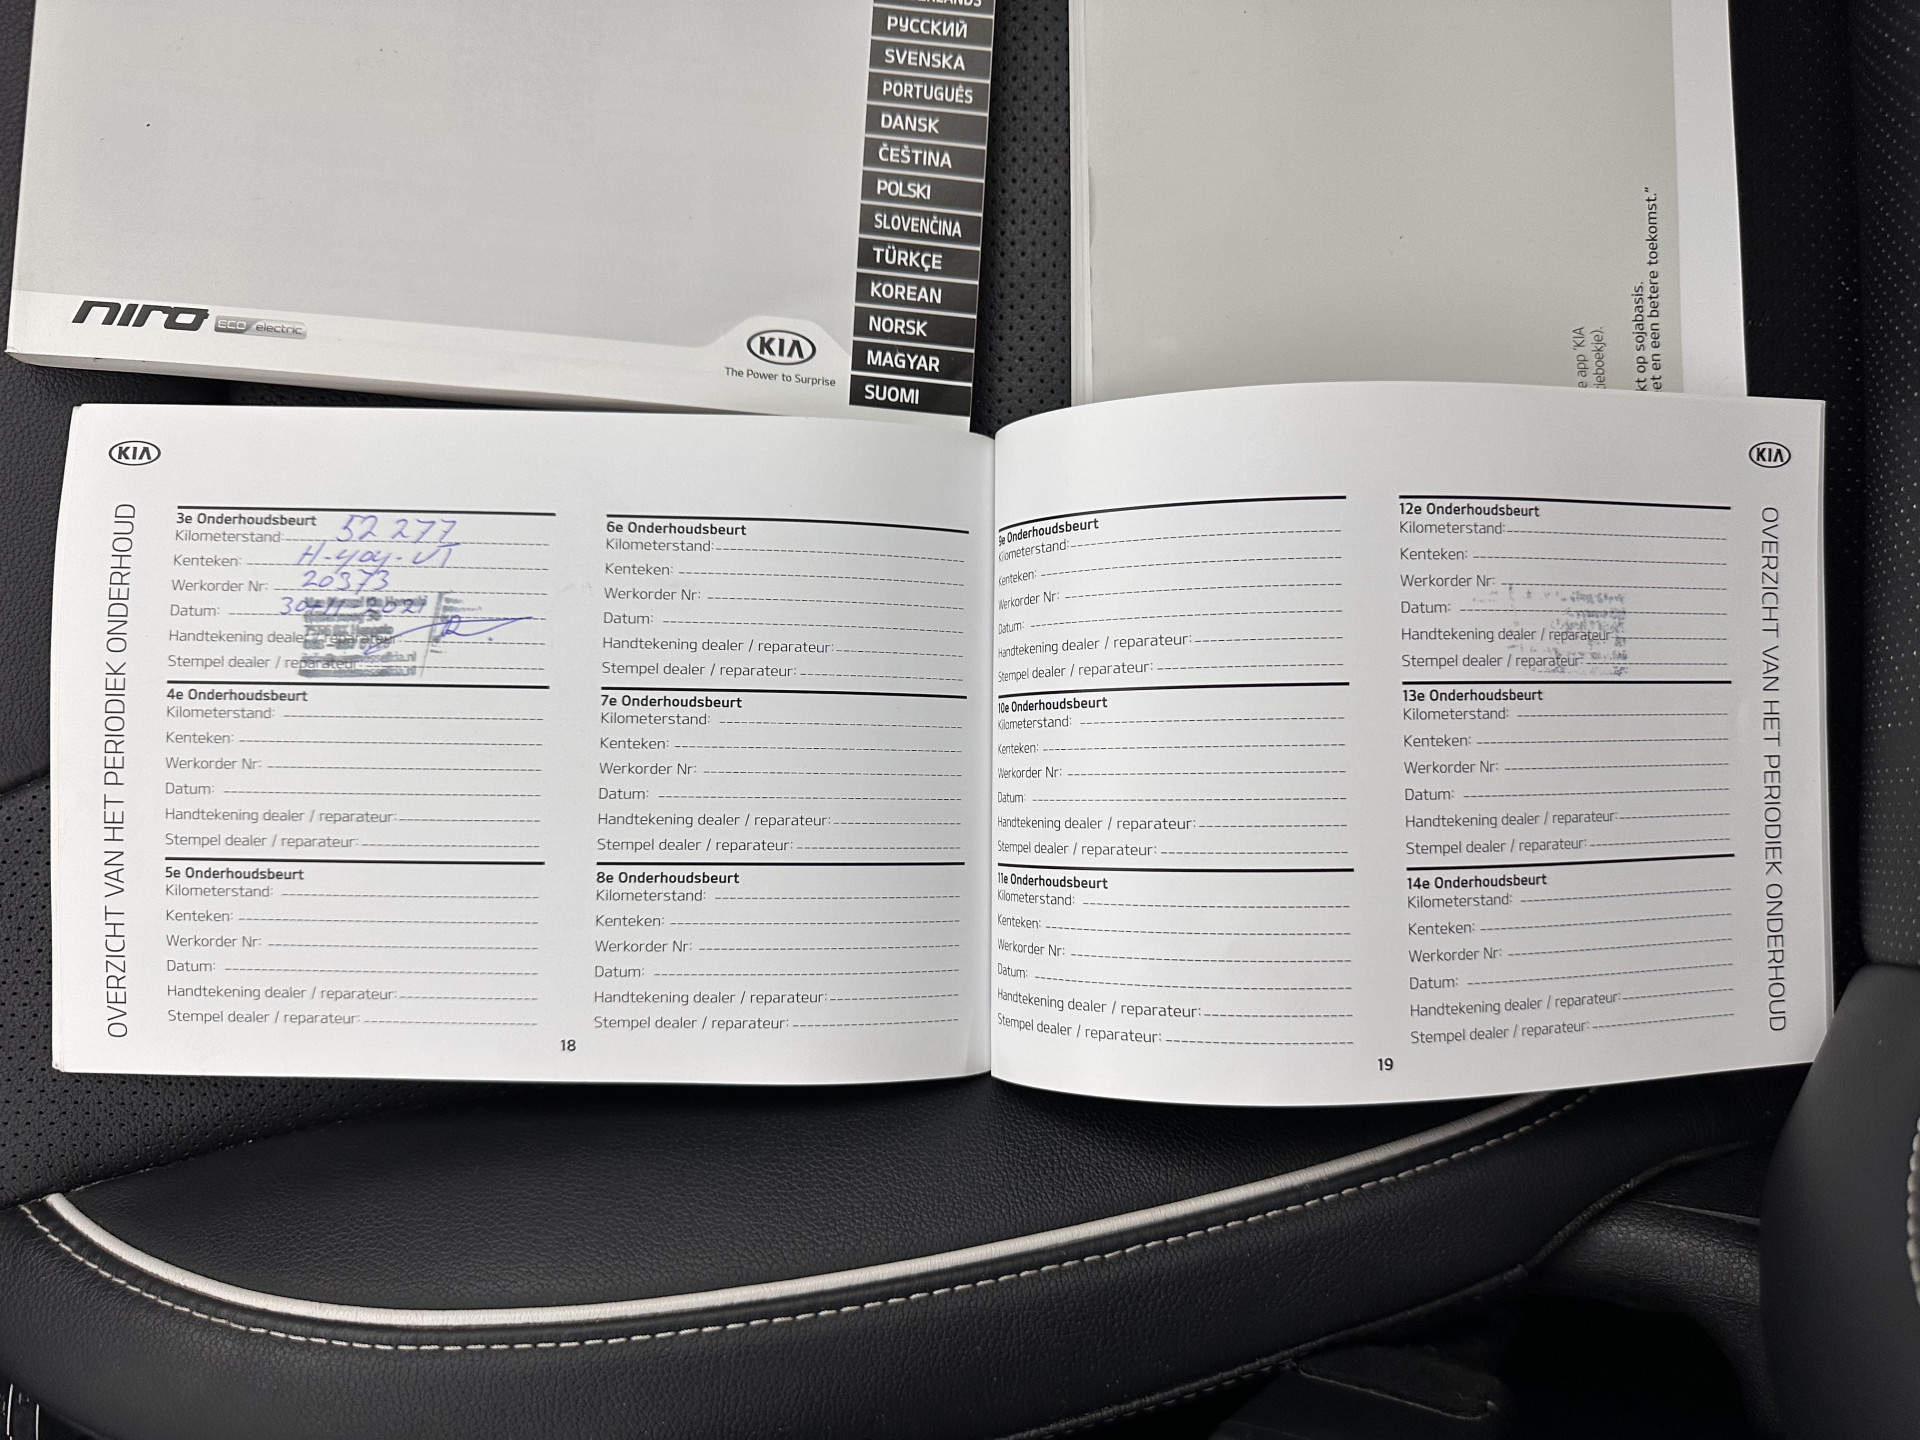 РУССКИЙ
SVENSKA
PORTUGUÊS
DANSK
ČEŠTINA
POLSKI
SLOVENČINA
TÜRKÇE
KOREAN
NORSK
MAGYAR
SUOMI
niro ECO electric
KIA
The Power to Surprise
e app 'KIA
kt op sojabasis.
et en een betere toekomst."
KIA
OVERZICHT VAN HET PERIODIEK ONDERHOUD
3e Onderhoudsbeurt
Kilometerstand: 52 277
Kenteken:
Werkorder Nr: 20373
Datum: 30-11-2021
Handtekening dealer / reparateur:
Stempel dealer / reparateur:
4e Onderhoudsbeurt
Kilometerstand:
Kenteken:
Werkorder Nr:
Datum:
Handtekening dealer / reparateur:
Stempel dealer / reparateur:
5e Onderhoudsbeurt
Kilometerstand:
Kenteken:
Werkorder Nr:
Datum:
Handtekening dealer / reparateur:
Stempel dealer / reparateur:
6e Onderhoudsbeurt
Kilometerstand:
Kenteken:
Werkorder Nr:
Datum:
Handtekening dealer / reparateur:
Stempel dealer / reparateur:
7e Onderhoudsbeurt
Kilometerstand:
Kenteken:
Werkorder Nr:
Datum:
Handtekening dealer / reparateur:
Stempel dealer / reparateur:
8e Onderhoudsbeurt
Kilometerstand:
Kenteken:
Werkorder Nr:
Datum:
Handtekening dealer / reparateur:
Stempel dealer / reparateur:
18
9e Onderhoudsbeurt
Kilometerstand:
Kenteken:
Werkorder Nr:
Datum:
Handtekening dealer / reparateur:
Stempel dealer / reparateur:
10e Onderhoudsbeurt
Kilometerstand:
Kenteken:
Werkorder Nr:
Datum:
Handtekening dealer / reparateur:
Stempel dealer / reparateur:
11e Onderhoudsbeurt
Kilometerstand:
Kenteken:
Werkorder Nr:
Datum:
Handtekening dealer / reparateur:
Stempel dealer / reparateur:
12e Onderhoudsbeurt
Kilometerstand:
Kenteken:
Werkorder Nr:
Datum:
Handtekening dealer / reparateur:
Stempel dealer / reparateur:
13e Onderhoudsbeurt
Kilometerstand:
Kenteken:
Werkorder Nr:
Datum:
Handtekening dealer / reparateur:
Stempel dealer / reparateur:
14e Onderhoudsbeurt
Kilometerstand:
Kenteken:
Werkorder Nr:
Datum:
Handtekening dealer / reparateur:
Stempel dealer / reparateur:
19
KIA
OVERZICHT VAN HET PERIODIEK ONDERHOUD